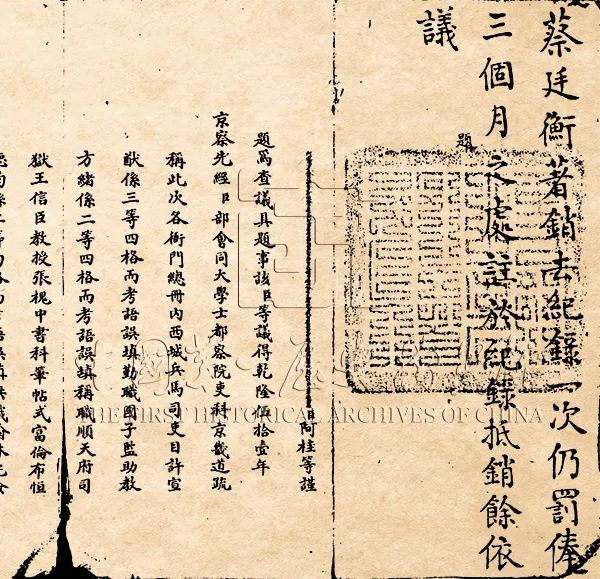 蔡廷衡著銷去紀錄一次仍罰俸
三個月之處註於紀錄抵銷餘依
議
題
臣阿桂等謹
題爲查議具題事該臣等議得乾隆伍拾壹年
京察先經臣部會同大學士都察院吏科京畿道疏
稱此次各衙門總冊内西城兵馬司吏目許宣
猷係三等四格而考語誤填勤職國子監助教
方緒係二等四格而考語誤填稱職順天府司
獄王信臣教授張槐中書科筆帖式富倫布恒
THE FIRST HISTORICAL ARCHIVES OF CHINA